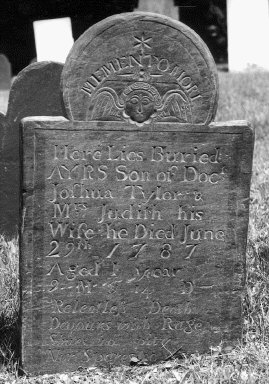 MEMENTO MORI
Here Lies Buried
AYRS Son of Doct
Joshua Tylor &
Mrs Judith his
Wife he Died June
29th 1787
Aged 1 year
Relentless Death
Devours with Rage